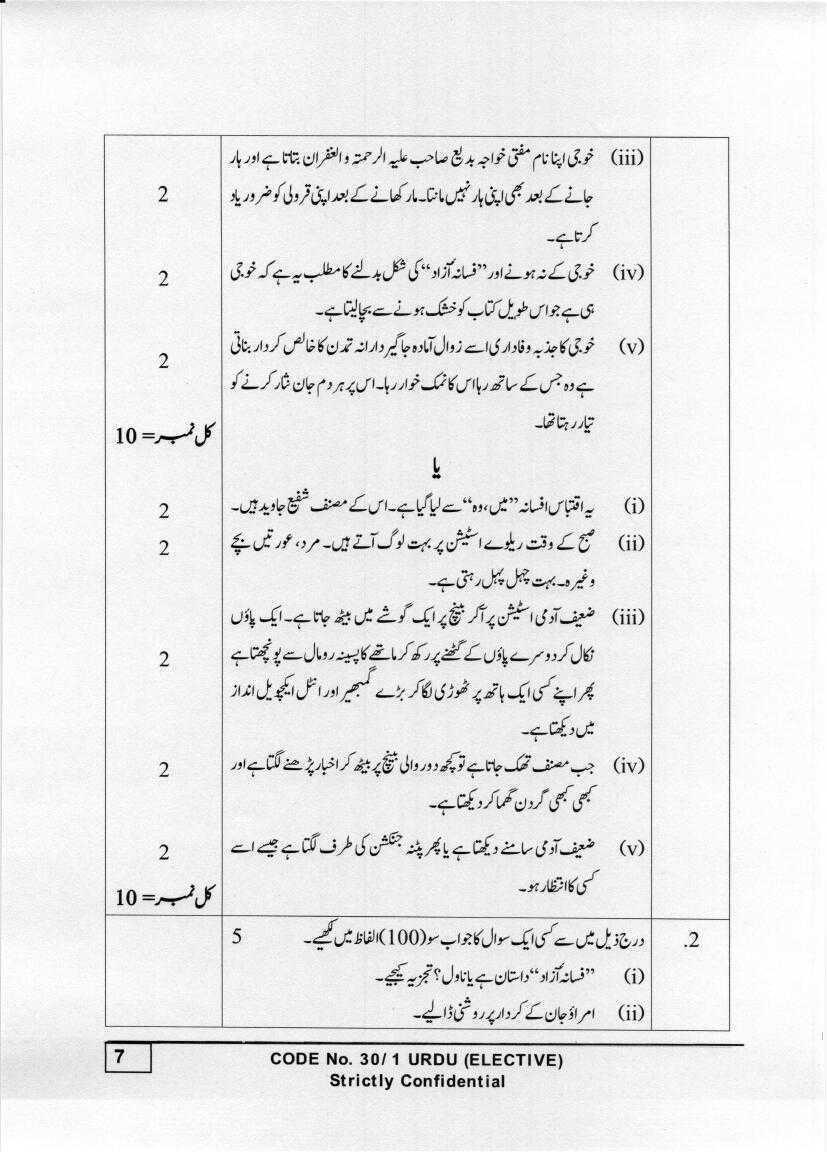 (iii) خوجی اپنا نام مفتی خواجہ بدیع صاحب علیہ الرحمتہ والغفران بتاتا ہے اور ہار
جانے کے بعد بھی اپنی ہار نہیں مانتا۔ مار کھانے کے بعد اپنی قرولی کو ضرور یاد 2
کرتا ہے۔
(iv) خوجی کے نہ ہونے اور ”فسانۂ آزاد“ کی شکل بدلنے کا مطلب یہ ہے کہ خوجی 2
ہی ہے جو اس طویل کتاب کو خشک ہونے سے بچا لیتا ہے۔
(v) خوجی کا جذبہ وفاداری اسے زوال آمادہ جاگیردارانہ تمدن کا خالص کردار بناتی 2
ہے وہ جس کے ساتھ رہا اس کا نمک خوار رہا۔ اس پر ہر دم جان نثار کرنے کو
تیار رہتا تھا۔
کل نمبر = 10
یا
(i) یہ اقتباس افسانہ ”میں، وہ“ سے لیا گیا ہے۔ اس کے مصنف شفیع جاوید ہیں۔ 2
(ii) صبح کے وقت ریلوے اسٹیشن پر بہت لوگ آتے ہیں۔ مرد، عورتیں بچے 2
وغیرہ۔ بہت چہل پہل رہتی ہے۔
(iii) ضعیف آدمی اسٹیشن پر آکر بینچ پر ایک گوشے میں بیٹھ جاتا ہے۔ ایک پاؤں
نکال کر دوسرے پاؤں کے گھٹنے پر رکھ کر ماتھے کا پسینہ رومال سے پونچھتا ہے 2
پھر اپنے کسی ایک ہاتھ پر ٹھوڑی لگا کر بڑے گمبھیر اور انٹل ایکچویل انداز
میں دیکھتا ہے۔
(iv) جب مصنف تھک جاتا ہے تو کچھ دور والی بینچ پر بیٹھ کر اخبار پڑھنے لگتا ہے اور 2
کبھی کبھی گردن گھما کر دیکھتا ہے۔
(v) ضعیف آدمی سامنے دیکھتا ہے یا پھر پٹنہ جنکشن کی طرف لگتا ہے جیسے اسے 2
کسی کا انتظار ہو۔
کل نمبر = 10
2. درج ذیل میں سے کسی ایک سوال کا جواب سو (100) الفاظ میں لکھیے۔ 5
(i) ”فسانۂ آزاد“ داستان ہے یا ناول؟ تجزیہ کیجیے۔
(ii) امراؤ جان کے کردار پر روشنی ڈالیے۔
7 CODE No. 30/1 URDU (ELECTIVE)
Strictly Confidential